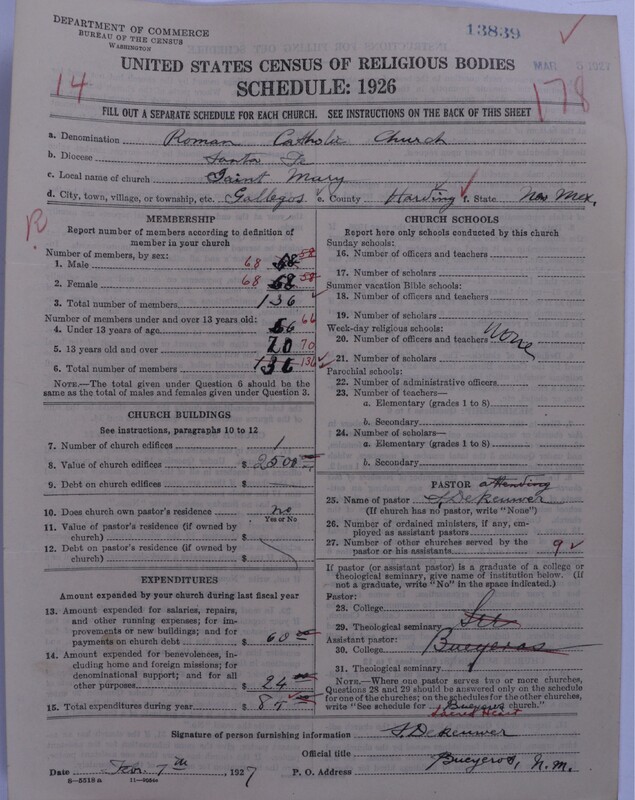 DEPARTMENT OF COMMERCE
BUREAU OF THE CENSUS
WASHINGTON
13839
MAR 5 1927
UNITED STATES CENSUS OF RELIGIOUS BODIES
14
SCHEDULE: 1926
178
FILL OUT A SEPARATE SCHEDULE FOR EACH CHURCH. SEE INSTRUCTIONS ON THE BACK OF THIS SHEET
a. Denomination Roman Catholic Church
b. Diocese Santa Fe
c. Local name of church Saint Mary
d. City, town, village, or township, etc. Gallegos e. County Harding f. State New Mex.
R
MEMBERSHIP
Report number of members according to definition of
member in your church
Number of members, by sex:
1. Male 68 68 58
2. Female 68 68 58
3. Total number of members 136
Number of members under and over 13 years old:
4. Under 13 years of age 66 66
5. 13 years old and over 70 70
6. Total number of members 136 136
NOTE.—The total given under Question 6 should be the
same as the total of males and females given under Question 3.
CHURCH BUILDINGS
See instructions, paragraphs 10 to 12
7. Number of church edifices 1
8. Value of church edifices $ 2500
9. Debt on church edifices $
10. Does church own pastor's residence? no
Yes or No
11. Value of pastor's residence (if owned by
church) $
12. Debt on pastor's residence (if owned by
church) $
EXPENDITURES
Amount expended by your church during last fiscal year
13. Amount expended for salaries, repairs,
and other running expenses; for im-
provements or new buildings; and for
payments on church debt $ 60
14. Amount expended for benevolences, in-
cluding home and foreign missions; for
denominational support; and for all
other purposes $ 24
15. Total expenditures during year $ 84
CHURCH SCHOOLS
Report here only schools conducted by this church
Sunday schools:
16. Number of officers and teachers
17. Number of scholars
Summer vacation Bible schools:
18. Number of officers and teachers
19. Number of scholars
Week-day religious schools:
20. Number of officers and teachers None
21. Number of scholars
Parochial schools:
22. Number of administrative officers
23. Number of teachers—
a. Elementary (grades 1 to 8)
b. Secondary
24. Number of scholars—
a. Elementary (grades 1 to 8)
b. Secondary
PASTOR attending
25. Name of pastor S. Dekeuwer
(If church has no pastor, write "None")
26. Number of ordained ministers, if any, em-
ployed as assistant pastors
27. Number of other churches served by the
pastor or his assistants 9
If pastor (or assistant pastor) is a graduate of a college or
theological seminary, give name of institution below. (If
not a graduate, write "No" in the space indicated.)
Pastor:
28. College
29. Theological seminary See
Assistant pastor:
30. College Bueyeros
31. Theological seminary
NOTE.—Where one pastor serves two or more churches,
Questions 28 and 29 should be answered only on the schedule
for one of the churches; on the schedules for the other churches,
write "See schedule for Bueyeros church."
Sacred Heart
Signature of person furnishing information S. Dekeuwer
Official title
Date Feb. 7th, 1927 P. O. Address Bueyeros, N. M.
8—5518a 11—9054a